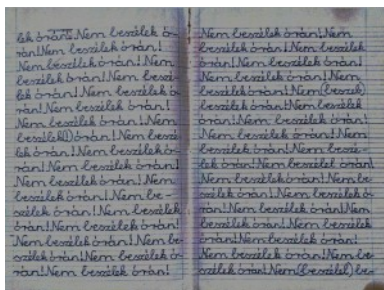 lek órán! Nem beszélek ó-
rán! Nem beszélek órán!
Nem beszélek órán! Nem
beszélek órán! Nem beszé-
lek órán! Nem beszélek ó-
rán! Nem beszélek órán!
Nem beszélek órán! Nem
beszélek órán! Nem beszé-
lek órán! Nem beszélek
órán! Nem beszélek ó-
rán! Nem beszélek órán!
Nem beszélek órán! Nem
beszélek órán! Nem be-
szélek órán! Nem beszélek
órán! Nem beszélek órán!
Nem beszélek órán! Nem be-
szélek órán! Nem beszélek ó-
rán! Nem beszélek órán!
Nem beszélek órán! Nem
beszélek órán! Nem beszélek
órán! Nem beszélek órán!
Nem beszélek órán! Nem
beszélek órán! Nem (beszek)
beszélek órán! Nem beszélek
órán! Nem beszélek órán!
Nem beszélek órán! Nem
beszélek órán! Nem beszé-
lek órán! Nem beszélek órán!
Nem beszélek órán! Nem be-
szélek órán! Nem beszélek ó-
rán! Nem beszélek órán! Nem
beszélek órán! Nem beszélek
órán! Nem beszélek órán!
Nem beszélek órán! Nem be-
szélek órán! Nem (beszélel) be-